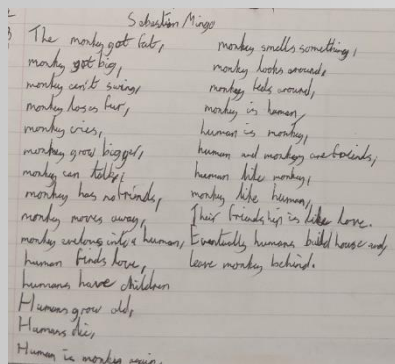 Sebastian Mingo
The monkey got fat,
monkey got big,
monkey can't swing,
monkey loses fur,
monkey cries,
monkey grow bigger,
monkey can talk,
monkey has no friends,
monkey moves away,
monkey evolves into a human,
human finds love,
humans have children
Humans grow old,
Humans die,
Human is monkey again,
monkey smells something,
monkey looks around,
monkey feels around,
monkey is human,
human is monkey,
human and monkey are friends,
human like monkey,
monkey like human,
Their friendship is like love.
Eventually humans build house and
leave monkey behind.